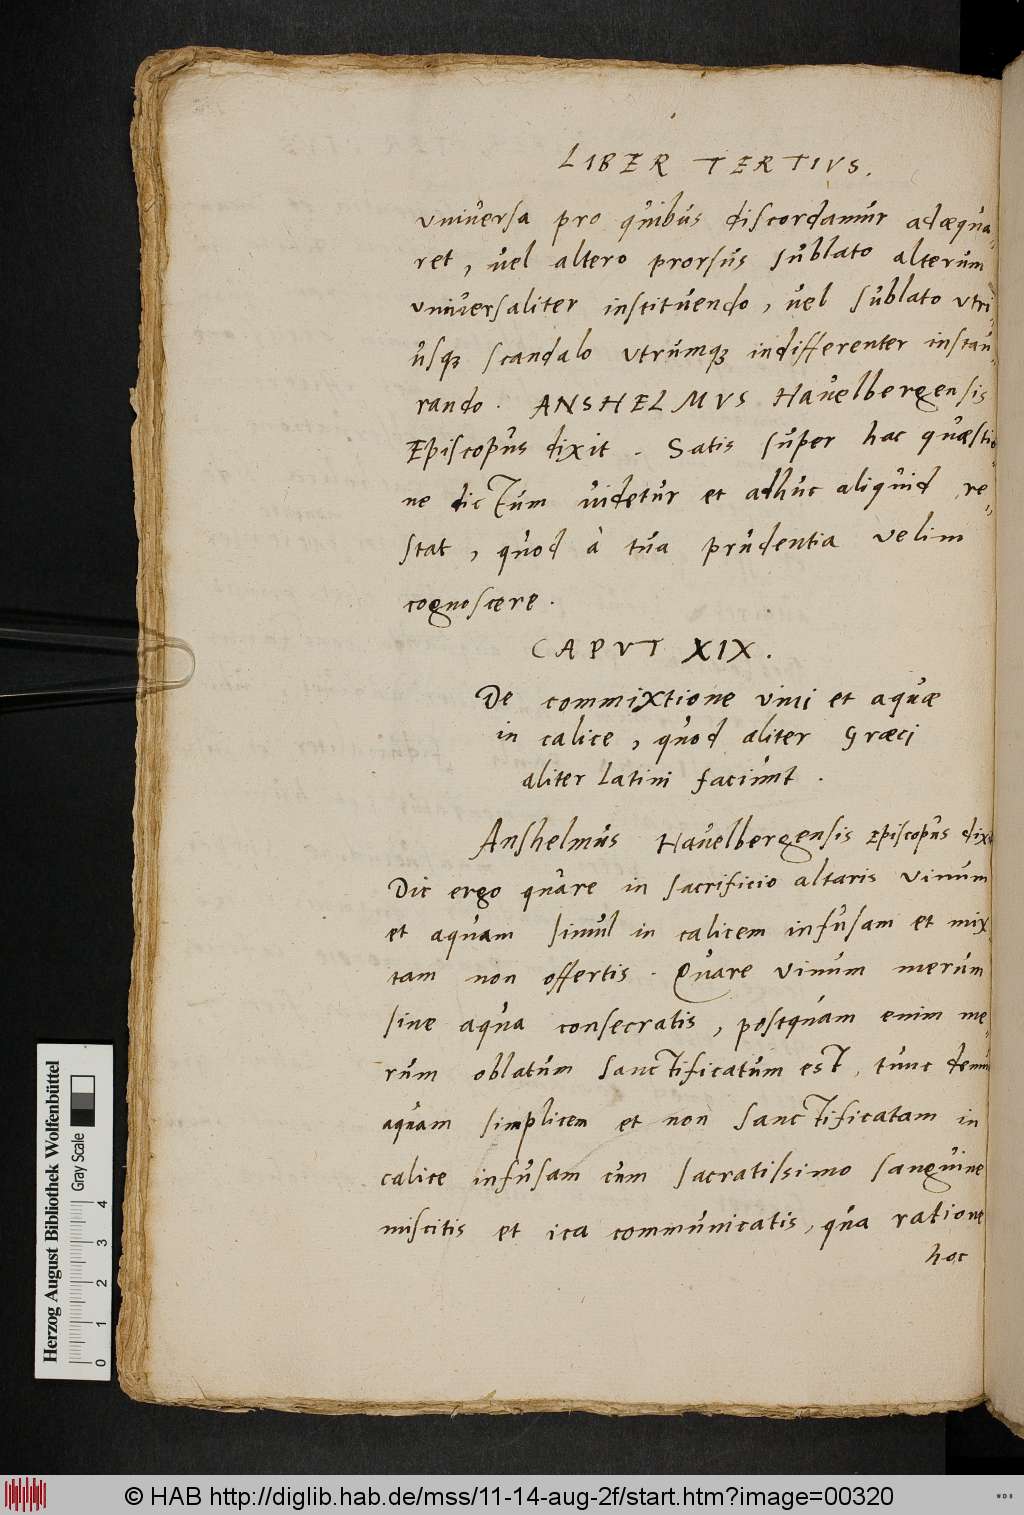 LIBER TERTIVS.
vniversa pro quibus discordamur adæqua=
ret, vel altero prorsus sublato alterum
vniversaliter instituendo, vel sublato vtri=
usq; scandalo vtrumq; indifferenter instau=
rando. ANSHELMVS Havelbergensis
Episcopus dixit. Satis super hac quæstio=
ne dictum videtur et adhuc aliquid re=
stat, quod à tua prudentia velim
cognoscere.
CAPVT XIX.
De commixtione vini et aquæ
in calice, quod aliter Græci
aliter Latini faciunt.
Anshelmus Havelbergensis Episcopus dixit
Dic ergo quare in sacrificio altaris vinum
et aquam simul in calicem infusam et mix
tam non offertis. Quare vinum merum
sine aqua consecratis, postquam enim me=
rum oblatum sanctificatum est, tunc demum
aquam simplicem et non sanctificatam in
calice infusam cum sacratissimo sanguine
miscitis et ita communicatis, qua ratione
hoc
Herzog August Bibliothek Wolfenbüttel
Gray Scale
0 1 2 3 4
© HAB http://diglib.hab.de/mss/11-14-aug-2f/start.htm?image=00320